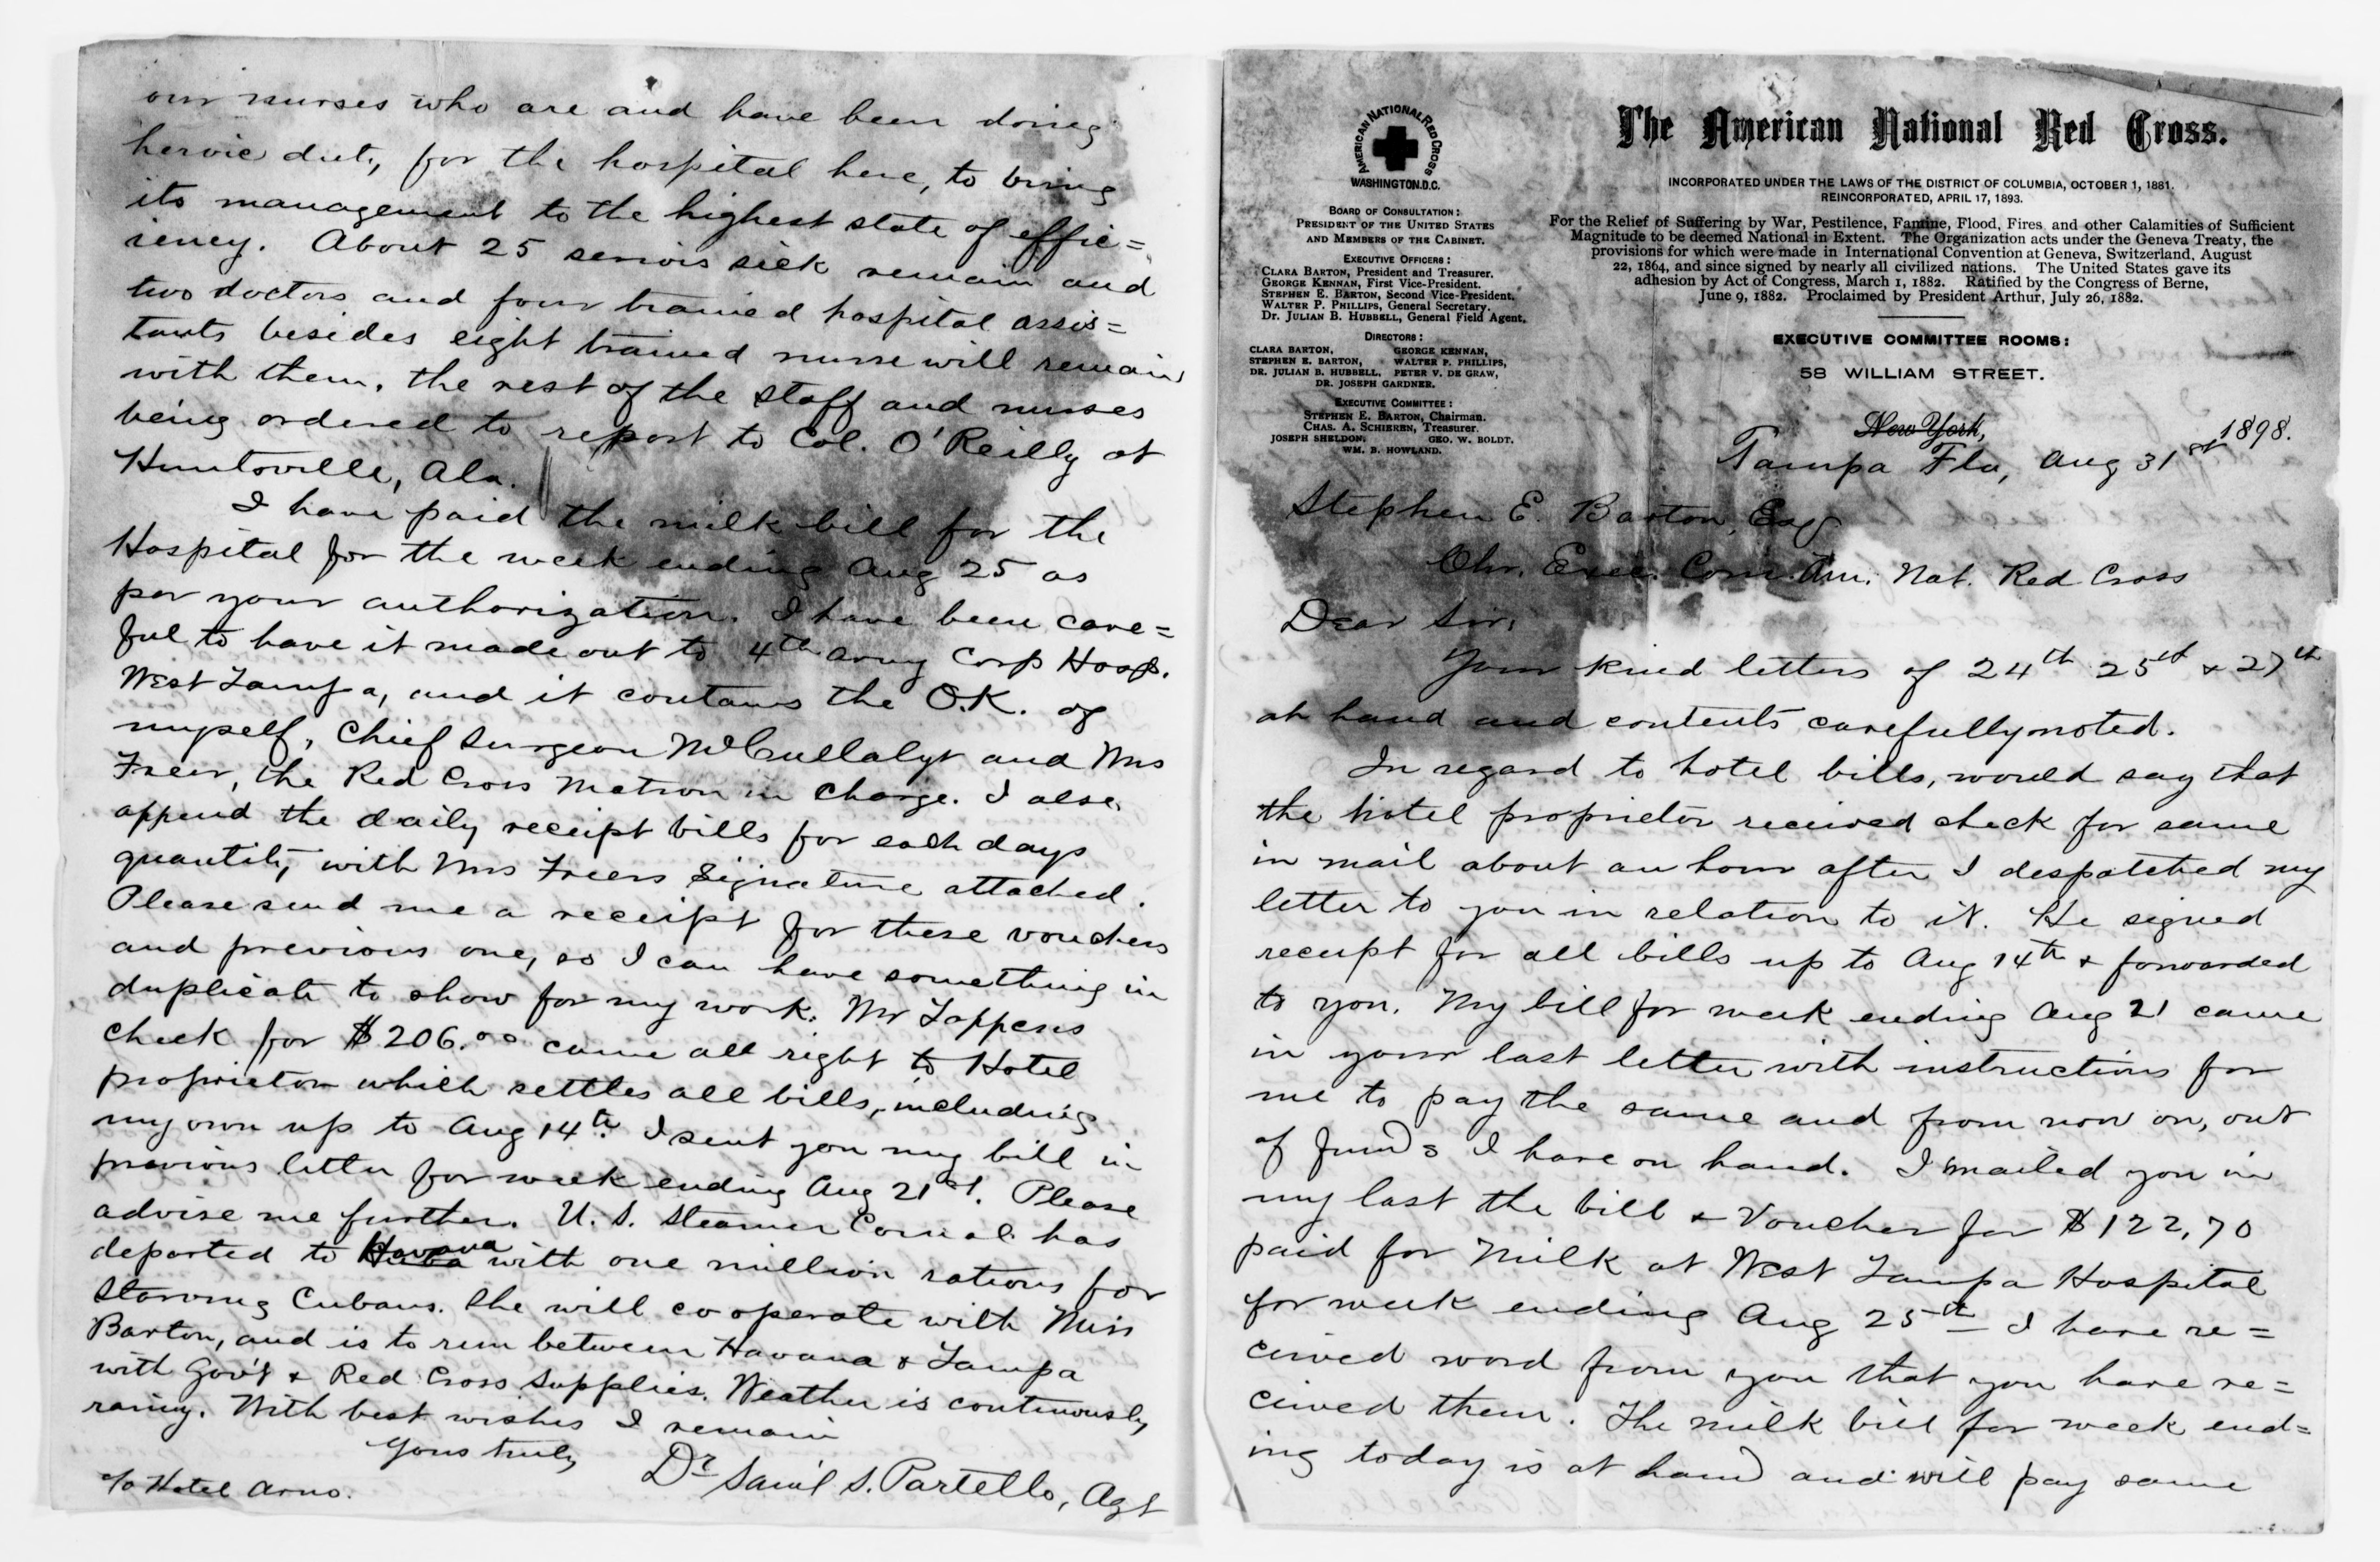 our nurses who are and have been doing
heroic duty for the hospital here, to bring
its management to the highest state of effic=
iency. About 25 serious sick remain and
two doctors and four trained hospital assis=
tants besides eight trained nurse will remain
with them, the rest of the staff and nurses
being ordered to report to Col. O'Reilly at
Huntsville, Ala.
I have paid the milk bill for the
Hospital for the week ending Aug 25 as
per your authorization. I have been care=
ful to have it made out to 4th Army Corp Hosp.
West Tampa, and it contains the O.K. of
myself, Chief Surgeon and Mrs
Freer, the Red Cross Matron in charge. I also
append the daily receipt bills for each days
quantity with Mrs Freers signature attached.
Please send me a receipt for these vouchers
and previous one, so I can have something in
duplicate to show for my work. Mr Tappens
check for $206.00 came all right to Hotel
proprietor which settles all bills, including
my own up to Aug 14th. I sent you my bill in
previous letter for week ending Aug 21st. Please
advise me further. U.S. Steamer Comal has
departed to Havana with one million rations for
starving Cubans. She will cooperate with Miss
Barton, and is to run between Havana & Tampa
with Gov't & Red Cross supplies. Weather is continuously
rainy. With best wishes I remain
Yours truly
Dr Sam'l S. Partello, Agt
c/o Hotel Arno.
AMERICAN NATIONAL RED CROSS
WASHINGTON, D.C.
BOARD OF CONSULTATION:
PRESIDENT OF THE UNITED STATES
AND MEMBERS OF THE CABINET.
EXECUTIVE OFFICERS:
CLARA BARTON, President and Treasurer.
GEORGE KENNAN, First Vice-President.
STEPHEN E. BARTON, Second Vice-President.
WALTER P. PHILLIPS, General Secretary.
Dr. JULIAN B. HUBBELL, General Field Agent.
DIRECTORS:
CLARA BARTON, GEORGE KENNAN,
STEPHEN E. BARTON, WALTER P. PHILLIPS,
DR. JULIAN B. HUBBELL, PETER V. DE GRAW,
DR. JOSEPH GARDNER.
EXECUTIVE COMMITTEE:
STEPHEN E. BARTON, Chairman.
CHAS. A. SCHIEREN, Treasurer.
JOSEPH SHELDON, GEO. W. BOLDT.
WM. B. HOWLAND.
The American National Red Cross.
INCORPORATED UNDER THE LAWS OF THE DISTRICT OF COLUMBIA, OCTOBER 1, 1881.
REINCORPORATED, APRIL 17, 1893.
For the Relief of Suffering by War, Pestilence, Famine, Flood, Fires and other Calamities of Sufficient
Magnitude to be deemed National in Extent. The Organization acts under the Geneva Treaty, the
provisions for which were made in International Convention at Geneva, Switzerland, August
22, 1864, and since signed by nearly all civilized nations. The United States gave its
adhesion by Act of Congress, March 1, 1882. Ratified by the Congress of Berne,
June 9, 1882. Proclaimed by President Arthur, July 26, 1882.
EXECUTIVE COMMITTEE ROOMS:
58 WILLIAM STREET.
New York,
Tampa Fla, Aug 31st 1898.
Stephen E. Barton, Esq
Chr. Exec. Com. Am. Nat. Red Cross
Dear Sir;
Your kind letters of 24th 25th & 27th
at hand and contents carefully noted.
In regard to hotel bills, would say that
the hotel proprietor received check for same
in mail about an hour after I despatched my
letter to you in relation to it. He signed
receipt for all bills up to Aug 14th & forwarded
to you. My bill for week ending Aug 21 came
in your last letter with instructions for
me to pay the same and from now on, out
of funds I have on hand. I mailed you in
my last the bill & voucher for $122,70
paid for Milk at West Tampa Hospital
for week ending Aug 25th I have re=
ceived word from you that you have re=
ceived them. The milk bill for week end=
ing today is at hand and will pay same